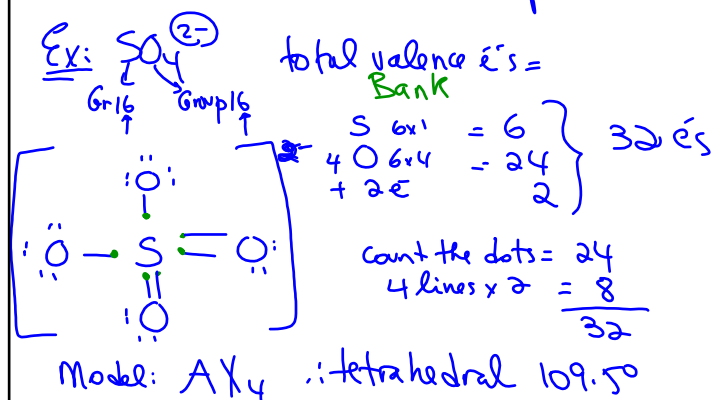 Ex: SO₄ 2- total valence é's =
Bank
Gr16 Group16
S 6x1 = 6
4 O 6x4 = 24 } 32 é's
+ 2é 2
[ :O: ] 2-
:O — S = O:
:O
count the dots = 24
4 lines x 2 = 8
32
Model: AX₄ ∴ tetrahedral 109.5°